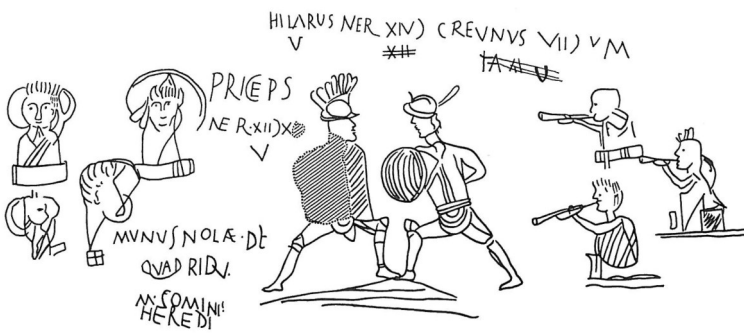 HILARUS NER XIV) (REVNVS VII) V M
V
XII
PRICEPS
NER·XII)X
V
MVNVS NOLÆ·DE
QVADRIDV·
M·SOMINI·
HEREDI